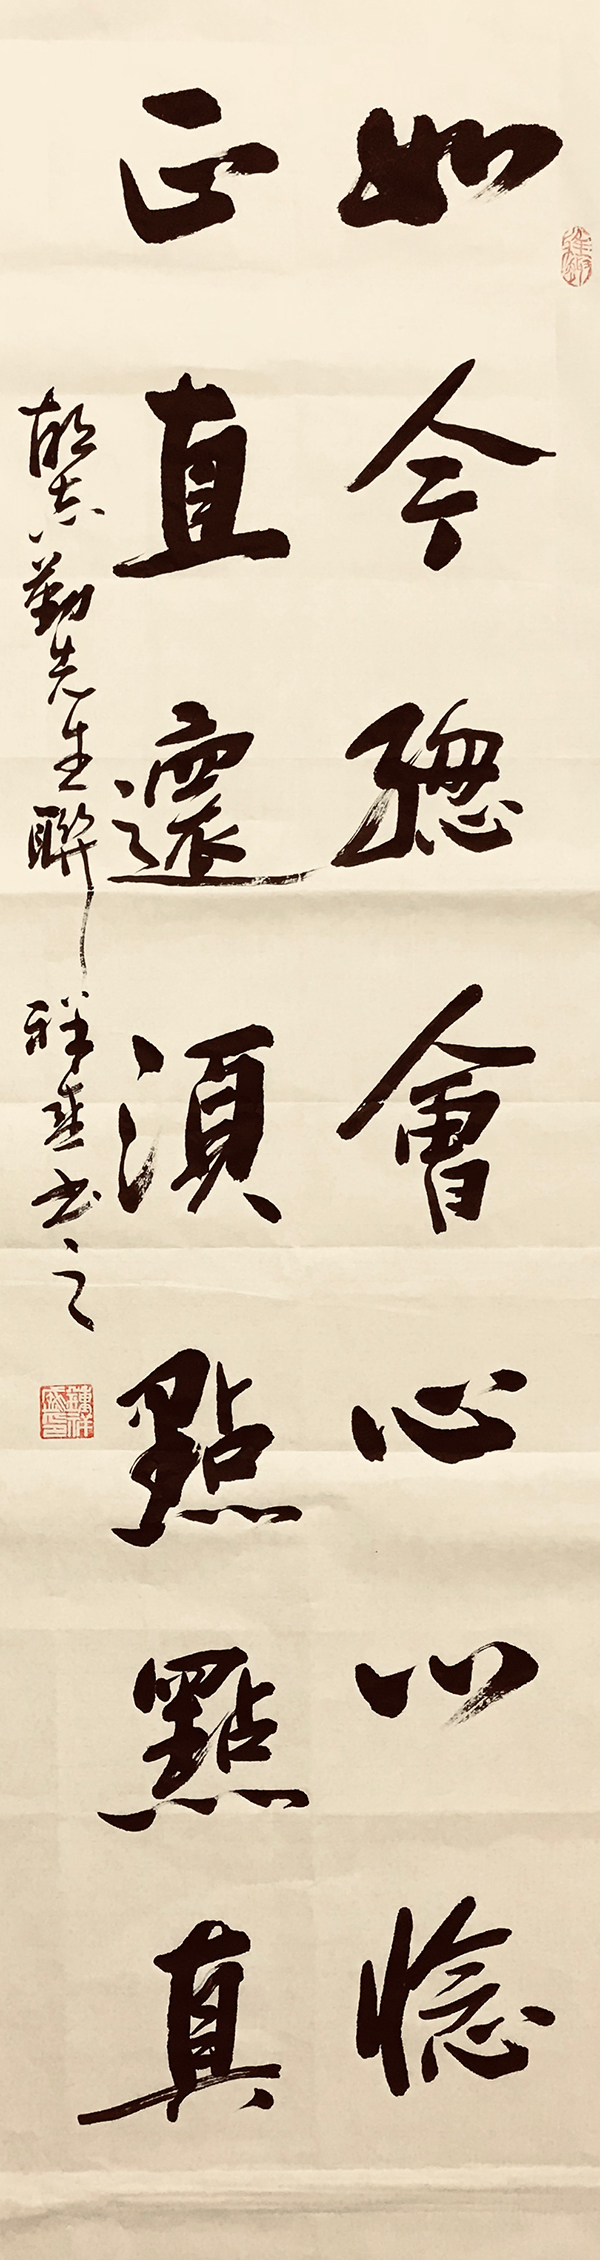 如今總會心心惗
正直還須點點真
胡志勤先生聯 祥盛書之